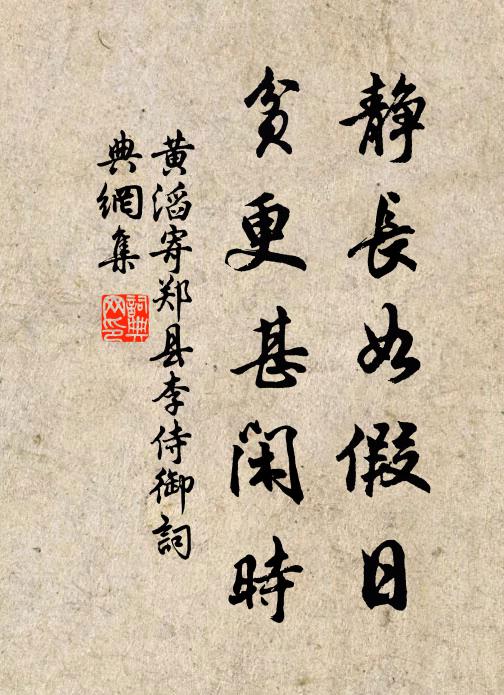 静長如假日
貧更甚閑時
黄滔寄郑县李侍御詞
典網集
詞典
网印